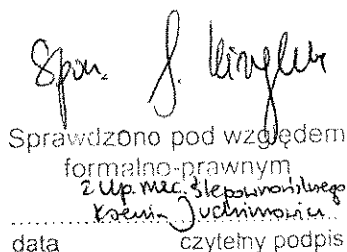 Spor. J.
Sprawdzono pod względem
formalno-prawnym
z up. mec.
Ksenia Juchimowicz
data czytelny podpis